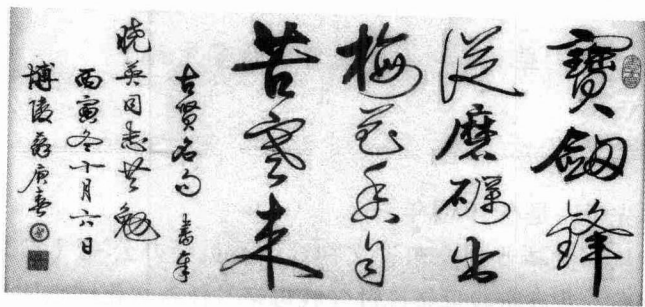 寶劔鋒
從磨礪出
梅花香自
苦寒来
古賢名句 書奉
晓英同志共勉
丙寅冬十月六日
博陵